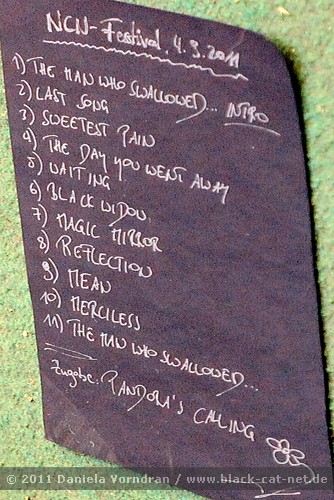 NCN-Festival, 4.9.2011
1) THE MAN WHO SWALLOWED... INTRO
2) LAST SONG
3) SWEETEST PAIN
4) THE DAY YOU WENT AWAY
5) WAITING
6) BLACK WIDOW
7) MAGIC MIRROR
8) REFLECTION
9) MEAN
10) MERCILESS
11) THE MAN WHO SWALLOWED...
Zugabe: PANDORA'S CALLING
© 2011 Daniela Vorndran / www.black-cat-net.de